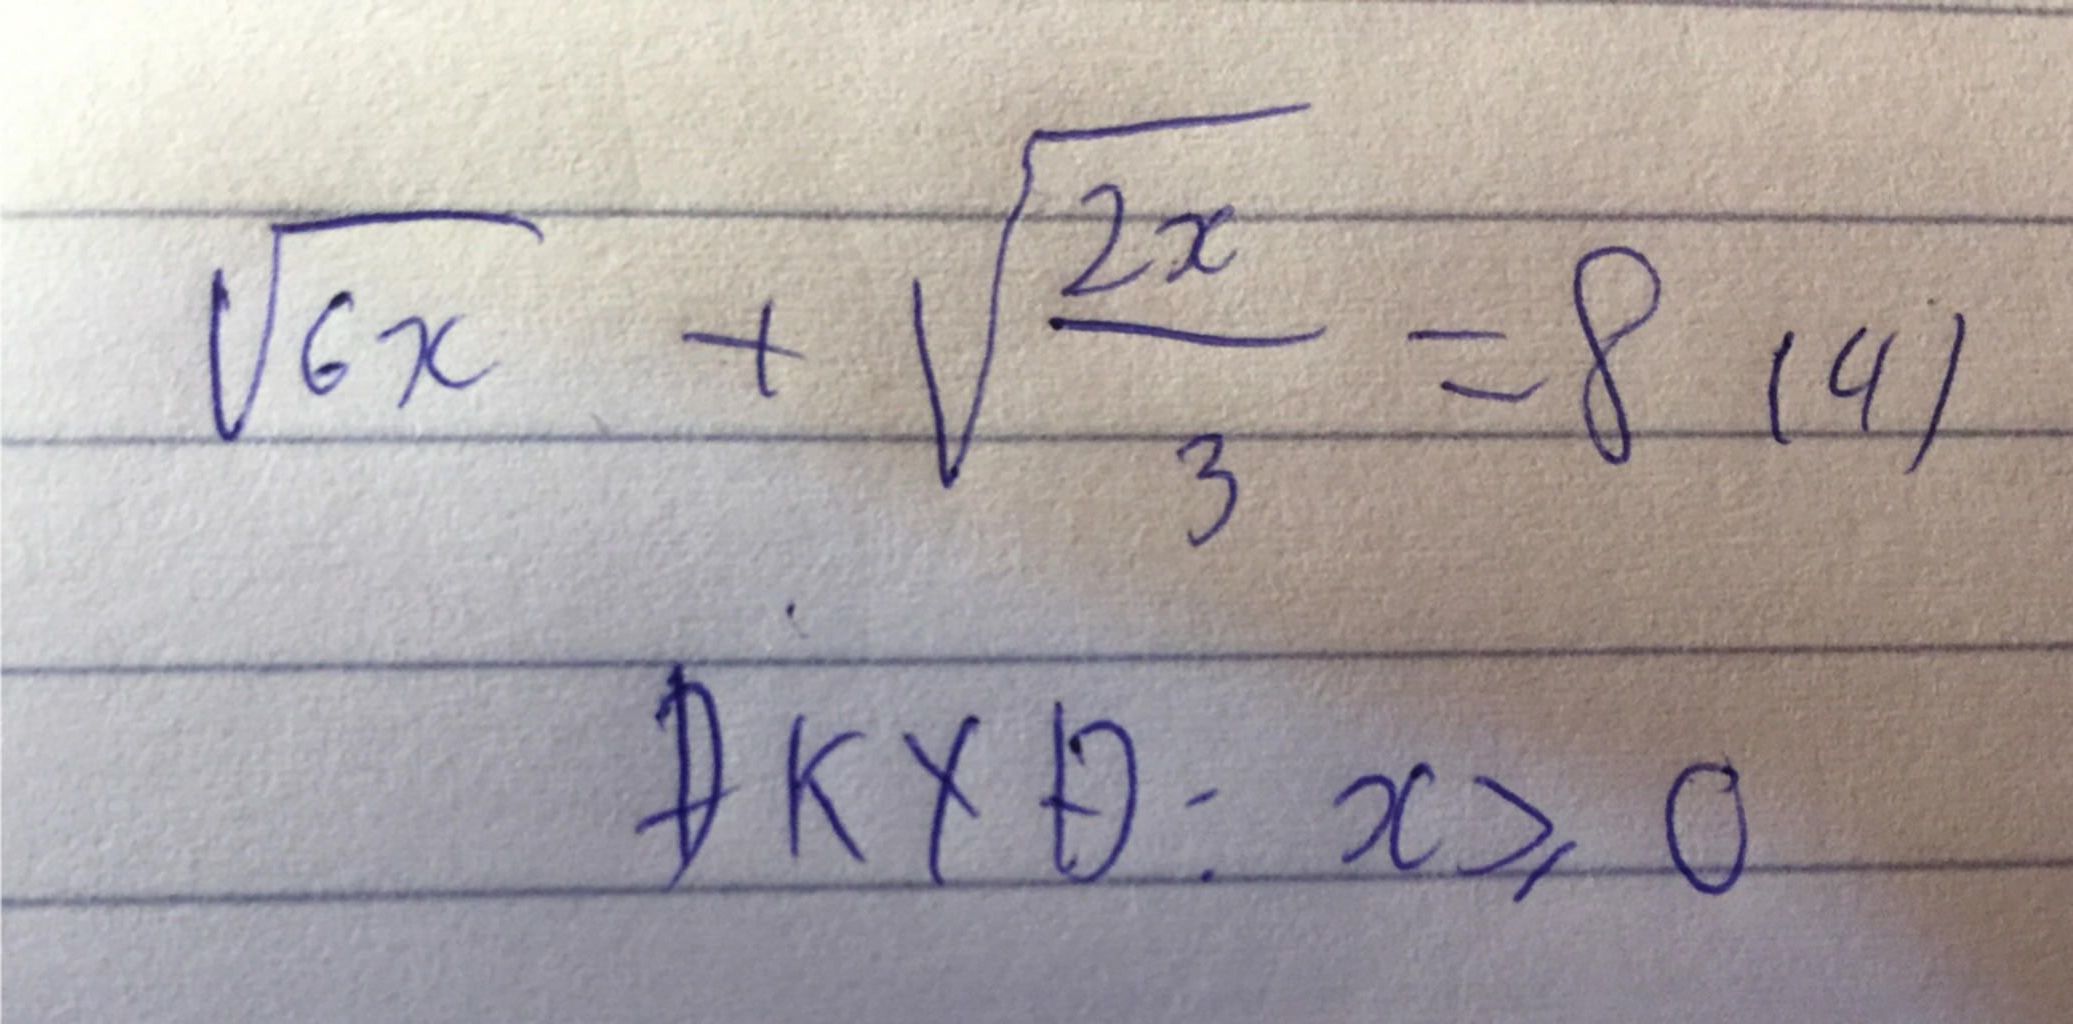 √6x + √2x/3 = 8 (4)
ĐKXĐ: x ⩾ 0